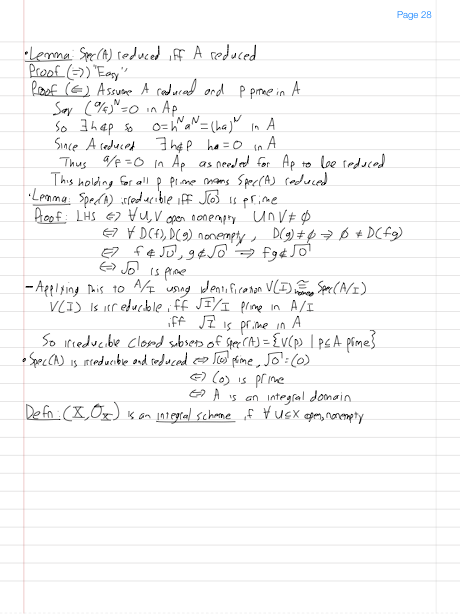 Page 28
• Lemma: Spec(A) reduced iff A reduced
Proof (⇒) "Easy"
Proof (⇐) Assume A reduced and p prime in A
Say (a/f)^N = 0 in Ap
So ∃h∉p so 0 = h^N a^N = (ha)^N in A
Since A reduced ∃h∉p ha = 0 in A
Thus a/f = 0 in Ap as needed for Ap to be reduced
This holding for all p prime means Spec(A) reduced
• Lemma: Spec(A) irreducible iff √(0) is prime
Proof: LHS ⇔ ∀U,V open nonempty U∩V ≠ ∅
⇔ ∀ D(f), D(g) nonempty, D(g) ≠ ∅ ⇒ ∅ ≠ D(fg)
⇔ f ∉ √0, g ∉ √0 ⇒ fg ∉ √0
⇔ √0 is prime
- Applying this to A/I using identification V(I) ≅ Spec(A/I)
V(I) is irreducible iff √I/I prime in A/I
iff √I is prime in A
So irreducible closed subsets of Spec(A) = {V(p) | p⊆A prime}
• Spec(A) is irreducible and reduced ⇔ √(0) prime, √0 = (0)
⇔ (0) is prime
⇔ A is an integral domain
Defn: (X, O_X) is an integral scheme if ∀ U⊆X open, nonempty